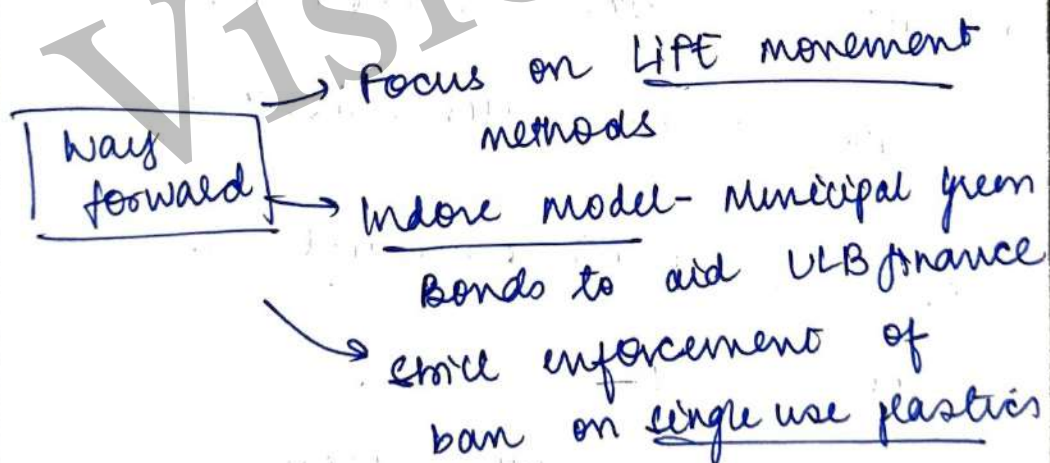 Visio
Way
forward
→ Focus on LiFE movement
methods
→ Indore Model - Municipal green
Bonds to aid ULB finance
→ strict enforcement of
ban on single use plastics